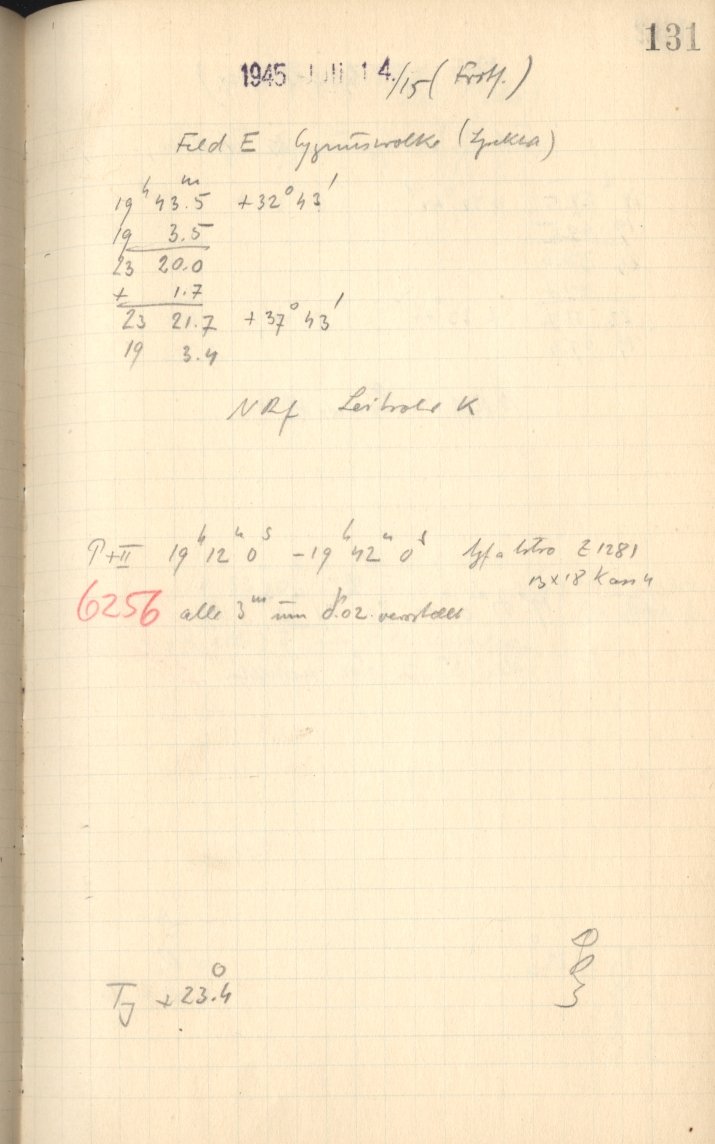 131
1945 Juli 14./15 (Forts.)
Feld E Cygnuswolke (Spektra)
19ʰ 43ᵐ.5 +32° 43'
19 3.5
23 20.0
+ 1.7
23 21.7 +37° 43'
19 3.4
NRf K
P+II 19ʰ 12ᵐ 0ˢ – 19ʰ 42ᵐ 0ˢ Agfa Astro Z 1281
13x18 Kass 4
6256 alle 3ᵐ um 0.02 verstellt
+23°.4